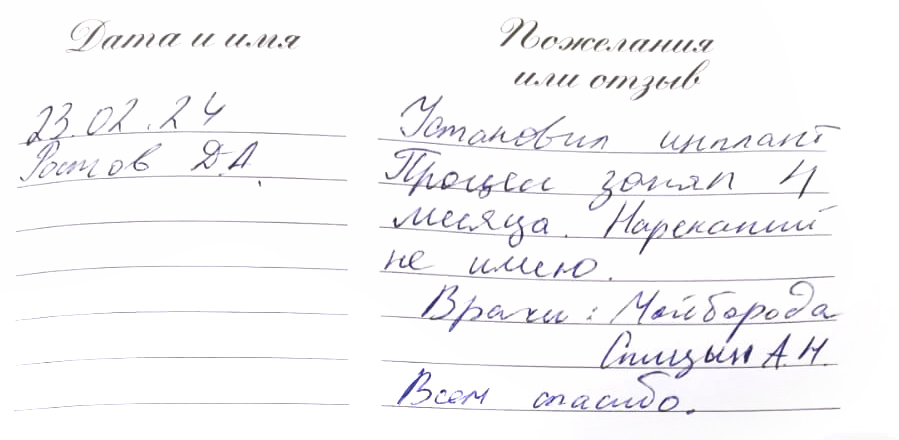 Дата и имя
23.02.24
Ростов Д.А.
Пожелания
или отзыв
Установил имплант
Процесс занял 4
месяца. Нареканий
не имею.
Врачи: Майборода
Спицын А.Н.
Всем спасибо.